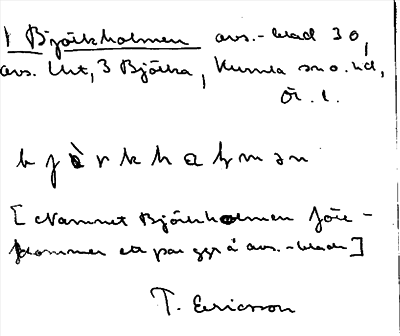 1 Björkholmen avs.-blad 30,
avs. Unt, 3 Björka, Kumla sn o. hd,
Ör. l.
b j ä r k h a ɫ m ə n
[Namnet Björkholmen före-
kommer ett par ggr å avs.-bladen]
T. Ericsson